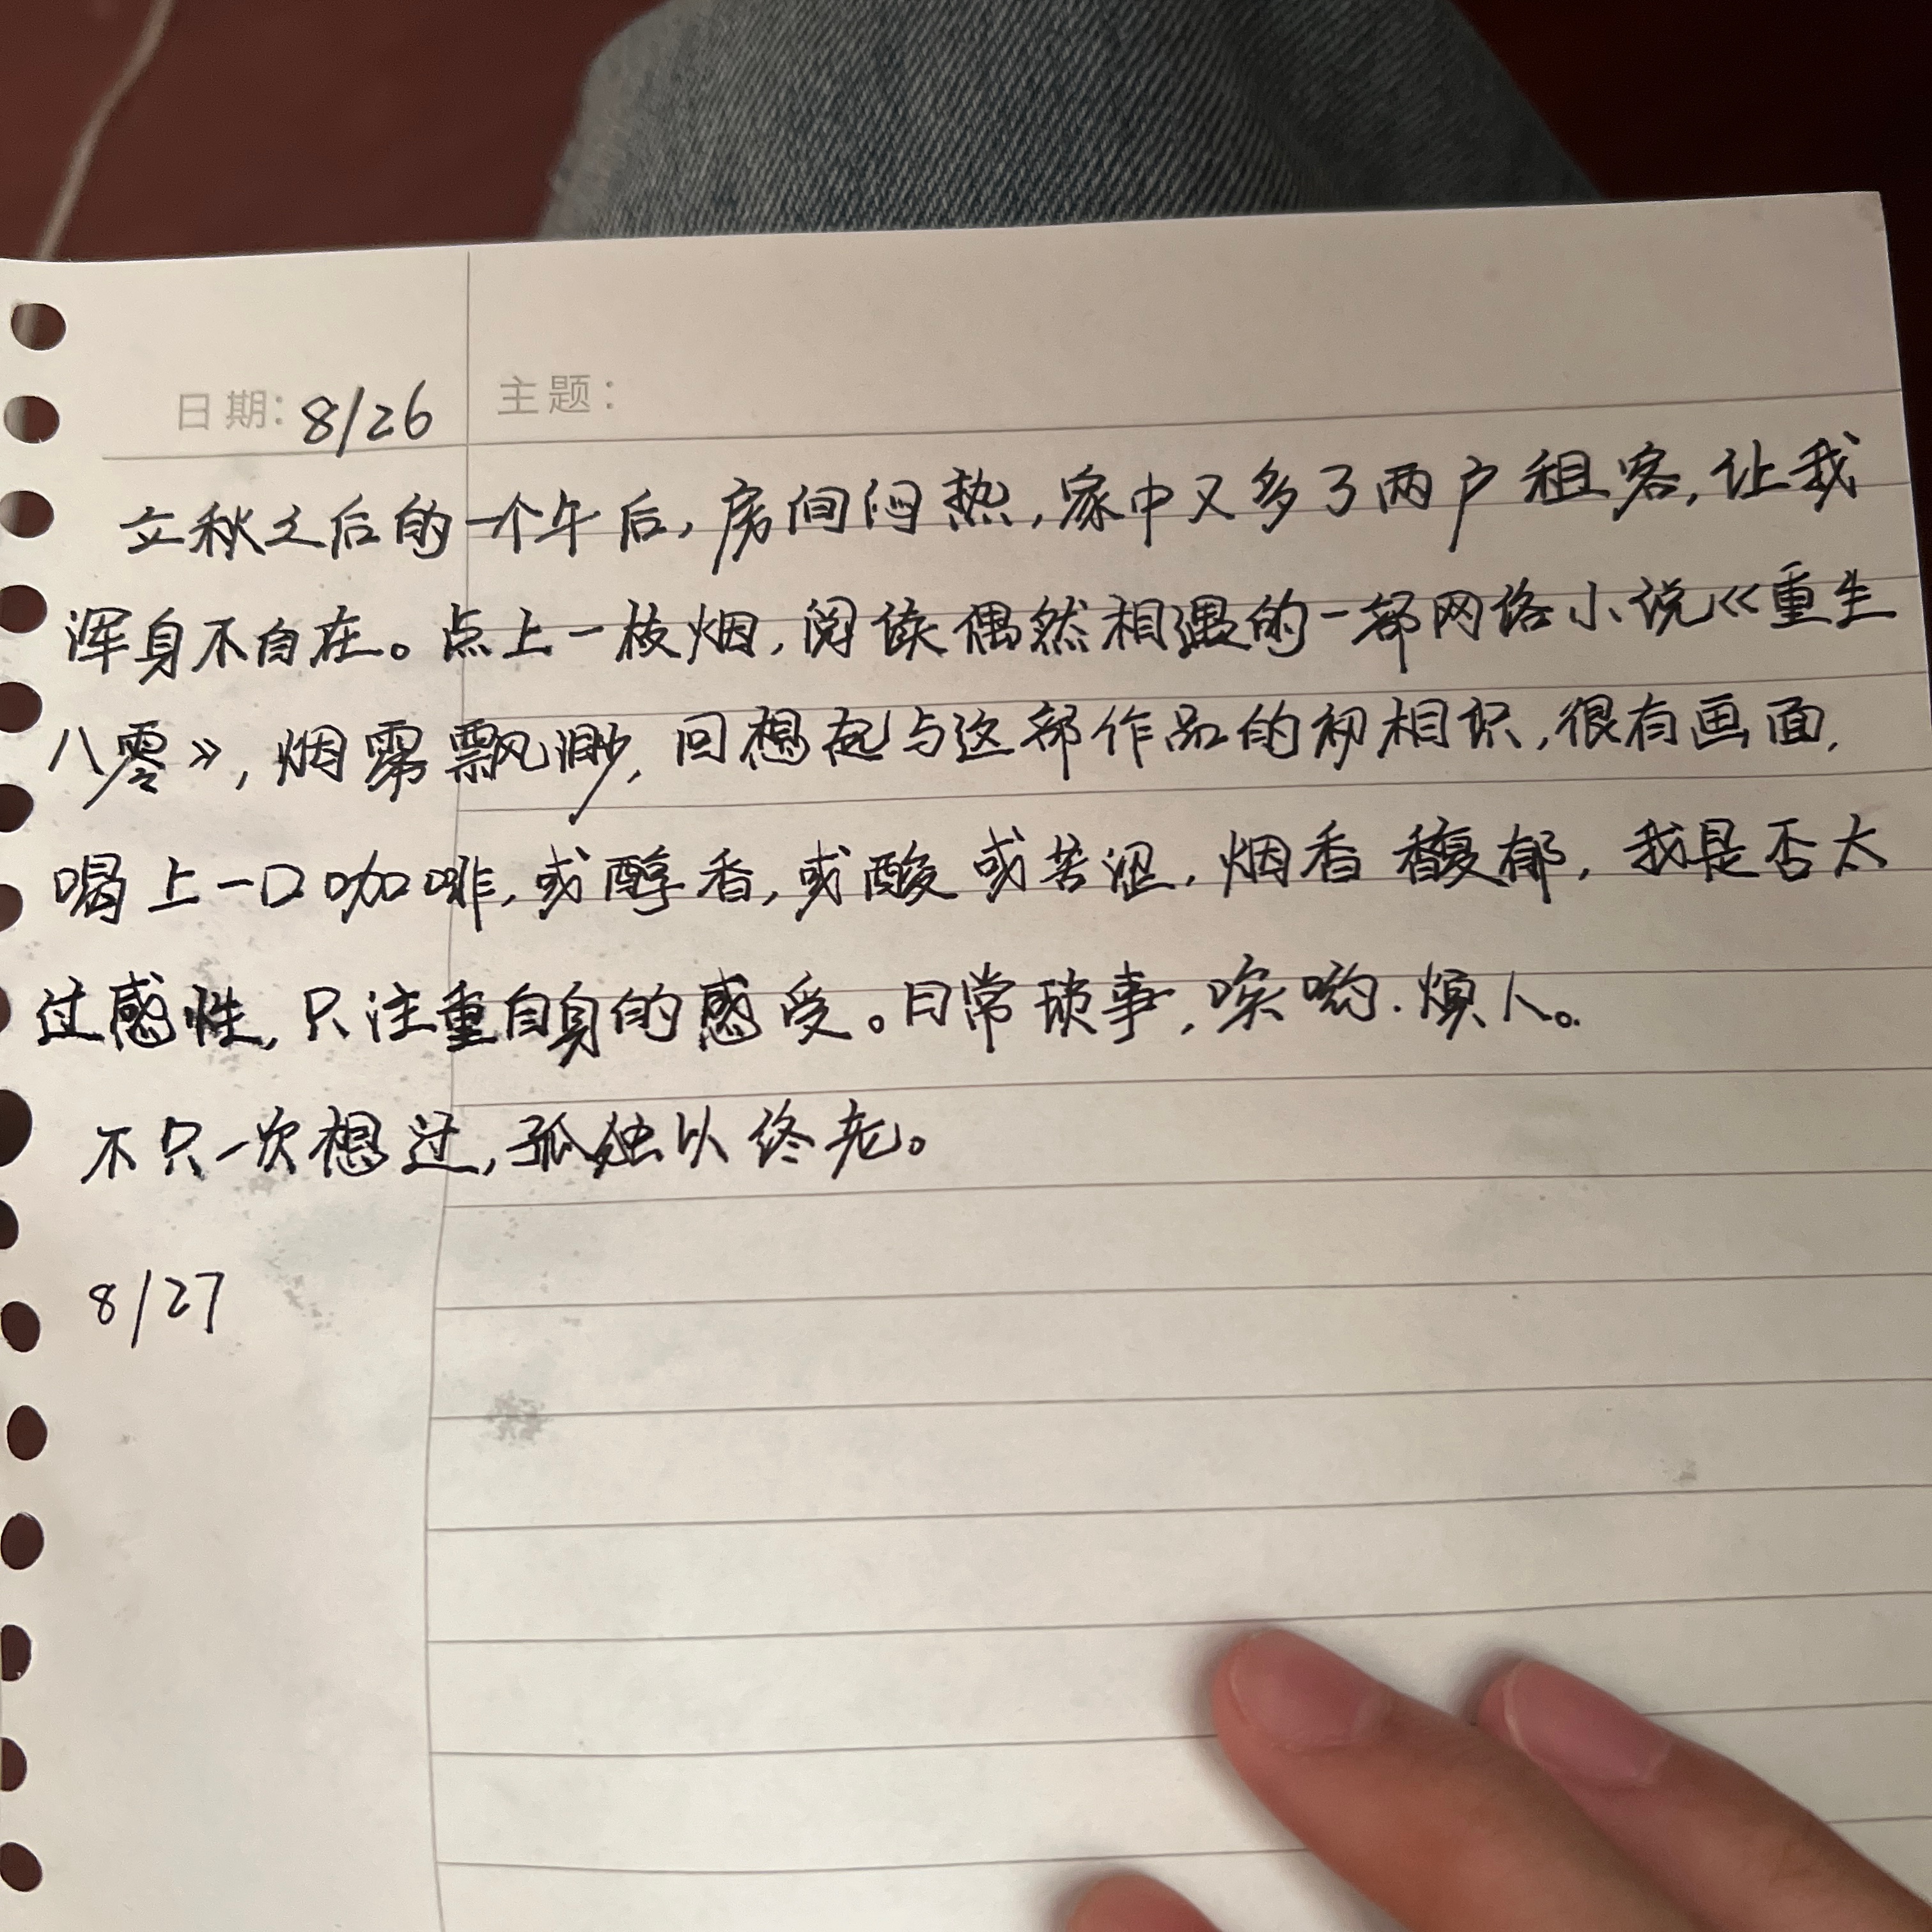 日期：8/26 主题：
立秋之后的一个午后，房间闷热，家中又多了两户租客，让我
浑身不自在。点上一枝烟，阅读偶然相遇的一部网络小说《重生
八零》，烟雾飘渺，回想起与这部作品的初相识，很有画面，
喝上一口咖啡，或醇香，或酸或苦涩，烟香馥郁，我是否太
过感性，只注重自身的感受。日常琐事，唉哟，烦人。
不只一次想过，孤独以终老。
8/27